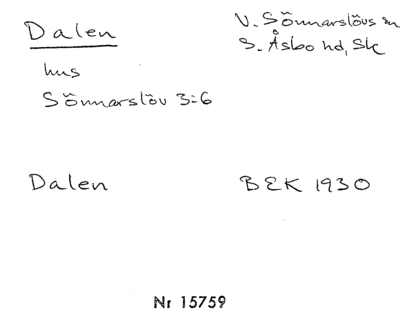 Dalen
V. Sönnarslövs sn
S. Åsbo hd, Sk
hus
Sönnarslöv 3:6
Dalen
BEK 1930
Nr 15759